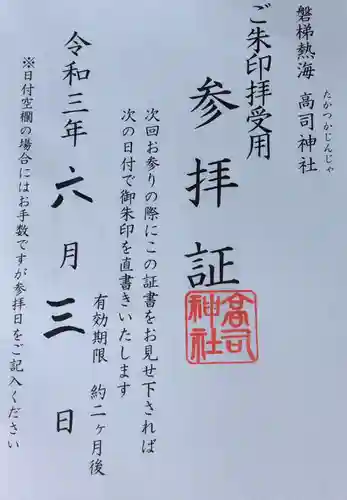 磐梯熱海 高司神社
たかつかじんじゃ
ご朱印拝受用
参拝証
高司神社
次回お参りの際にこの証書をお見せ下されば
次の日付で御朱印を直書きいたします
有効期限 約二ヶ月後
令和三年六月三日
※日付空欄の場合にはお手数ですが参拝日をご記入ください